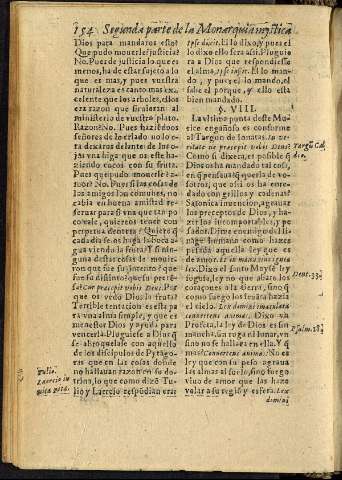 154 Segunda parte de la Monarquia mystica
Dios para mandaros esto?
Que pudo mouerle? justicia?
No. Pues de justicia lo que es
menos, ha de estar sujeto a lo
que es mas, y pues nuestra
naturaleza es tanto mas ex-
celente que los arboles, ellos
era razon que siruieran al
ministerio de vuestro plato.
Razon? No. Pues haziédoos
señores de lo criado no lo
es dexaros delante de los o-
jos vna higa que os este ha-
ziendo cocos con su fruta.
Pues que pudo mouerle? ra-
zon? No. Pues si las cosas de
los amigos son comunes, no
cabia en buena amistad re-
seruar para si vna que tan po
co vale, y quereros tener con
perpetua dentera? Quiere q̃
cada dia se os haga la boca a-
gua viendo la fruta? Y si nin-
guna destas cosas le mouie-
ron que fue su intento? que
fue su disinto? que su pretē-
sa? Cur praecepit vobis Deus. Por
que os vedò Dios la fruta?
Terrible tentacion es esta pa
ra vna alma simple, y que es
menester Dios y ayuda para
vencerla. Pluguiesse a Dios q̃
se abroquelasse con aquello
de los discipulos de Pytago-
ras que en las cosas donde
no hallauan razon en su do-
trina, lo que como dizē Tu-
lio y Laercio respōdian era:
Tulio.
Laercio in
ipse dixit. El lo dixo, y pues el
lo dixo ello sera assi. Pluguie
ra a Dios que respondiesse
el alma, ipse iussit. El lo man-
dò, y pues el lo mandò, el
sabe el porque, y ello esta
bien mandado.
§. VIII.
La vltima punta deste Mu-
sico engañosa es conforme
al Targon de Ionatas.
ritate ne praecepit vobis Deus?
Como si dixera, es posible q̃
Dios ha mandado tal cosa,
en q̃ quitandoos la libertad
que os dio, os ha enrre-
dado con grillos y cadenas?
Satanica inuencion, agrauar
los preceptos de Dios, y ha-
zer los incomportables, y pe
sados. Dize enemigo del li-
nage humano como hazes
pesada aquella ley que es
de amor. Et in manu eius ignea
lex. Dixo el santo Moyse ley
fogosa, ley no que abrase los
coraçones a la tierra, sino q̃
como fuego los tenāra hazia
el cielo. Lex Domini immaculata
conuertens animas. Dixo vn
Profeta, la ley de Dios es sin
mancha, sin ruga ni lunar, ni
sino no se hallara en ella. Y q̃
mas? Conuertens animas. No es
ley que con su peso agraua
las almas al suelo, sino fuego
viuo de amor que las haze
volar a su region y esfera. Lex
domini
Targū Cal
deo.
Deut. 33.
Psalm. 18.